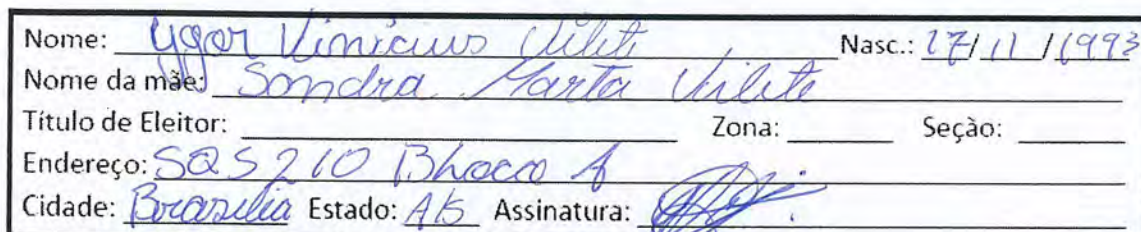 Nome: Ygor Vinicius Vilete Nasc.: 17/11/1993
Nome da mãe: Sandra Marta Vilete
Título de Eleitor: Zona: Seção:
Endereço: SQS 210 Bloco A
Cidade: Brasilia Estado: Assinatura: